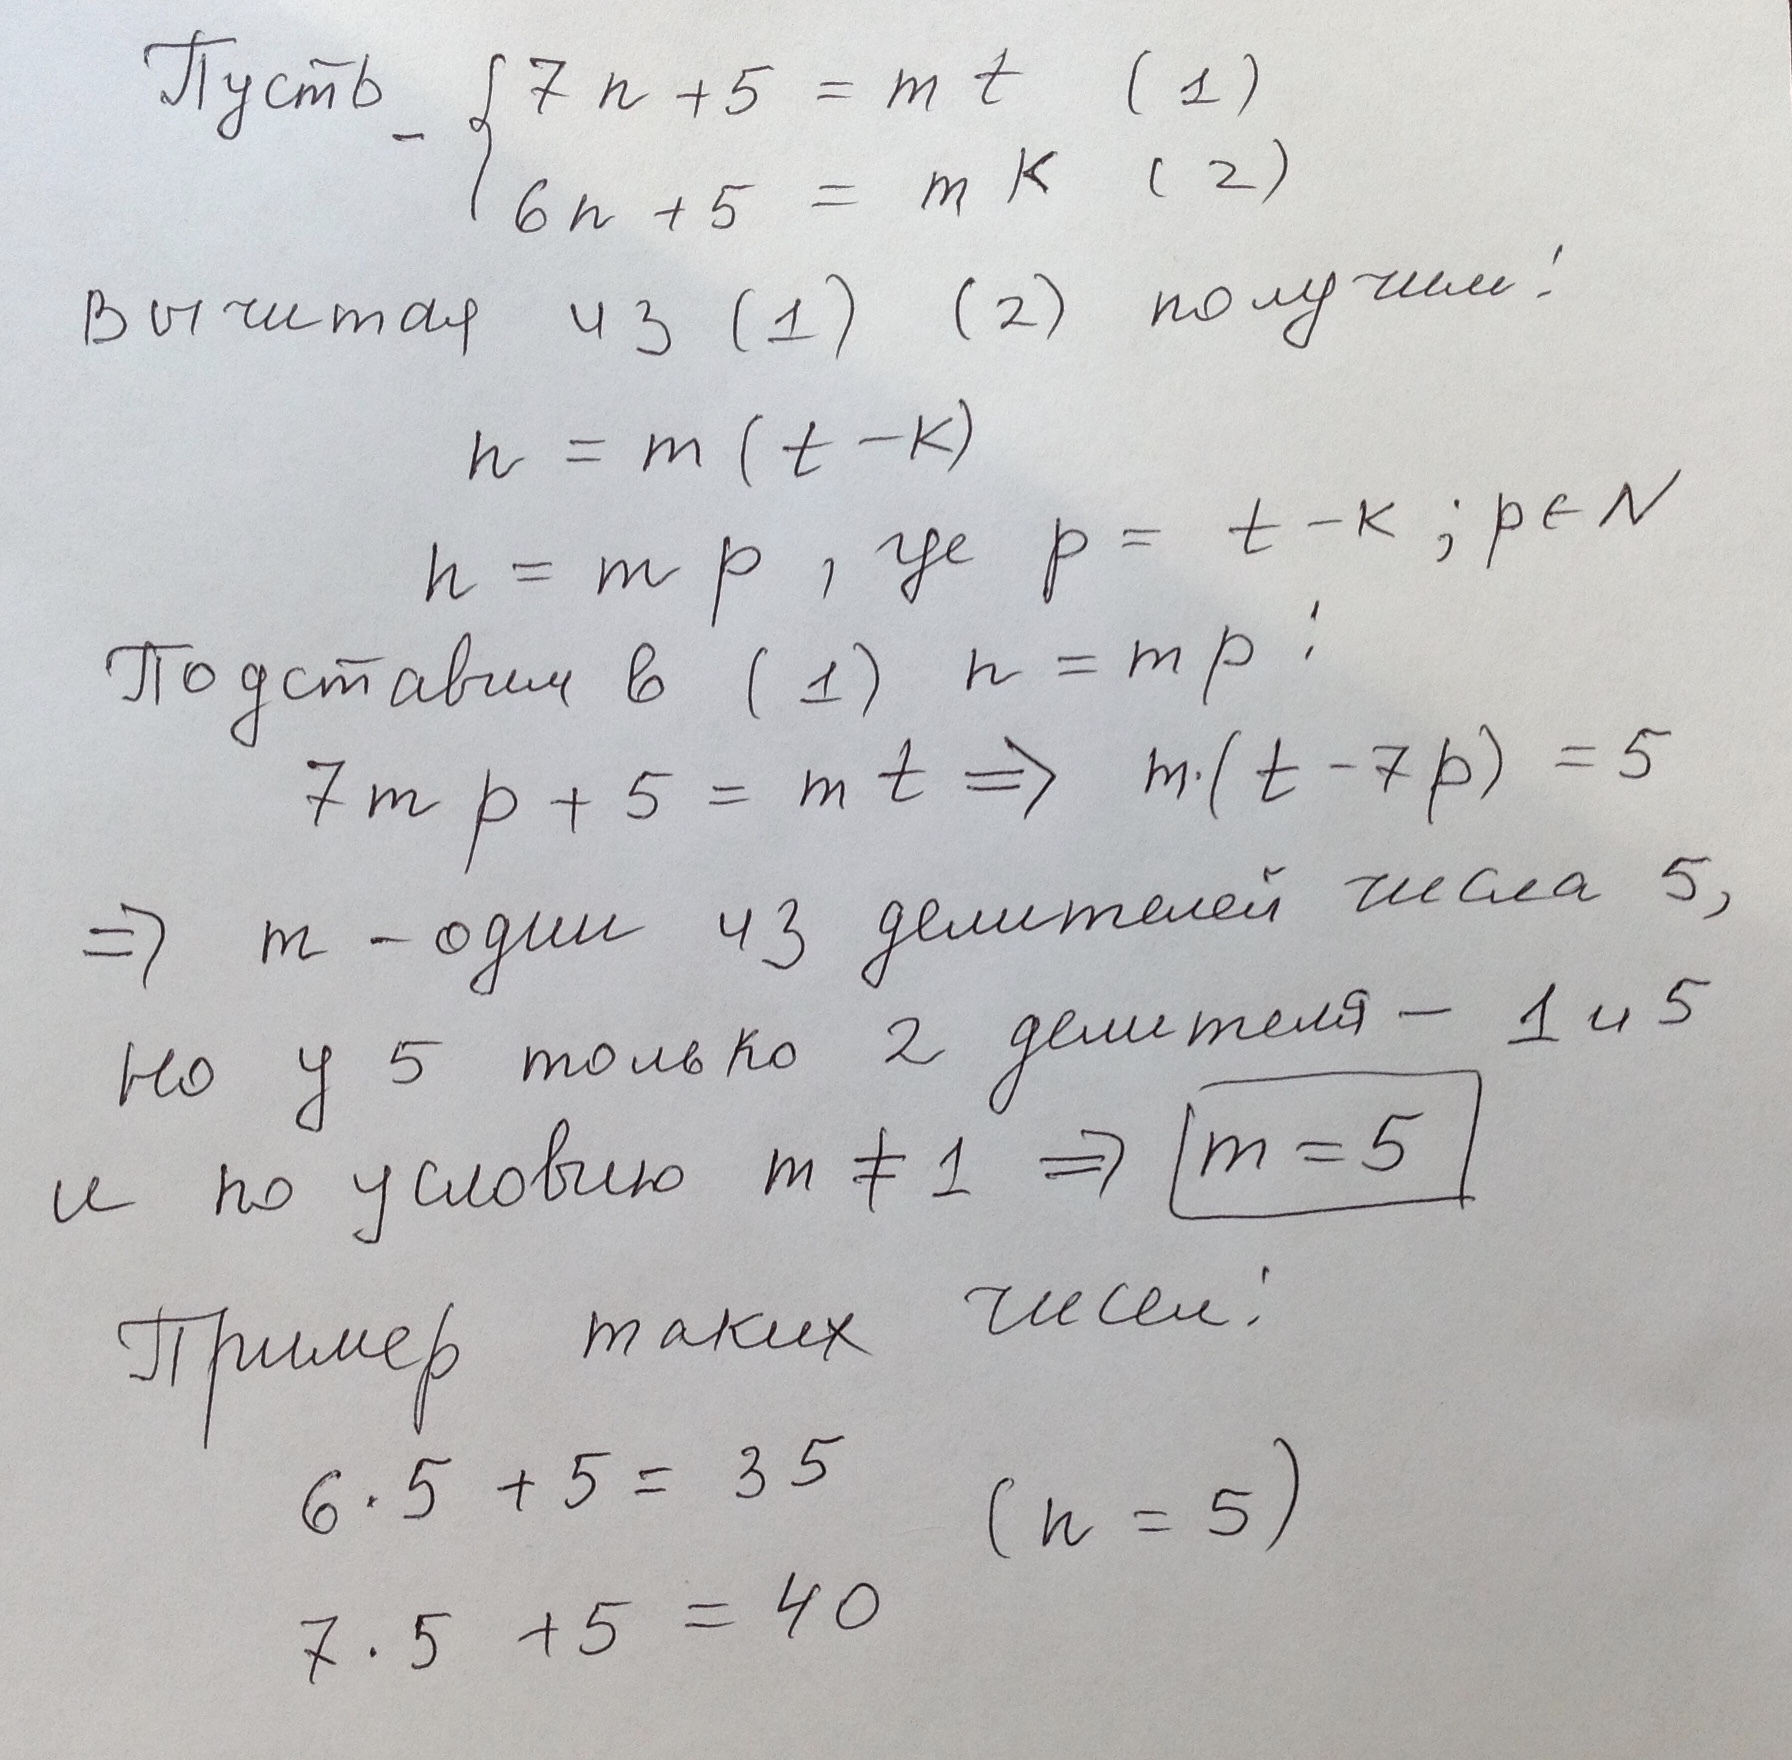 Пусть - { 7n + 5 = mt (1)
6n + 5 = mk (2)
Вычитая из (1) (2) получим:
n = m(t - k)
n = mp, где p = t - k; p ∈ N
Подставим в (1) n = mp:
7mp + 5 = mt => m·(t - 7p) = 5
=> m - один из делителей числа 5,
но у 5 только 2 делителя - 1 и 5
и по условию m ≠ 1 => m = 5
Пример таких чисел:
6·5 + 5 = 35
(n = 5)
7·5 + 5 = 40